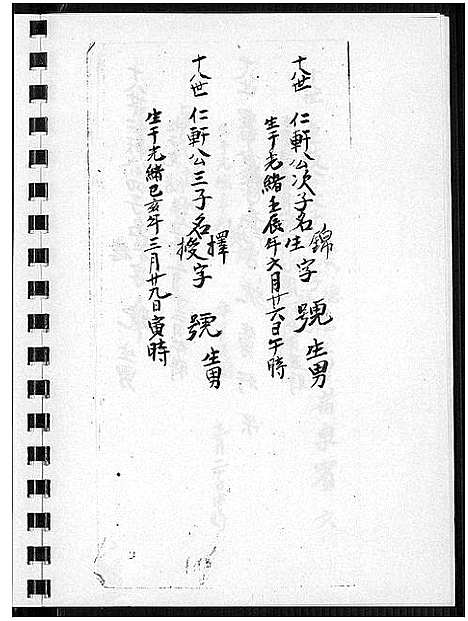 十八世 仁軒公次子名錦生字 號 生男
生于光緒壬辰年六月廿六日午時
十八世 仁軒公三子名擇授字 號 生男
生于光緒己亥年三月廿九日寅時